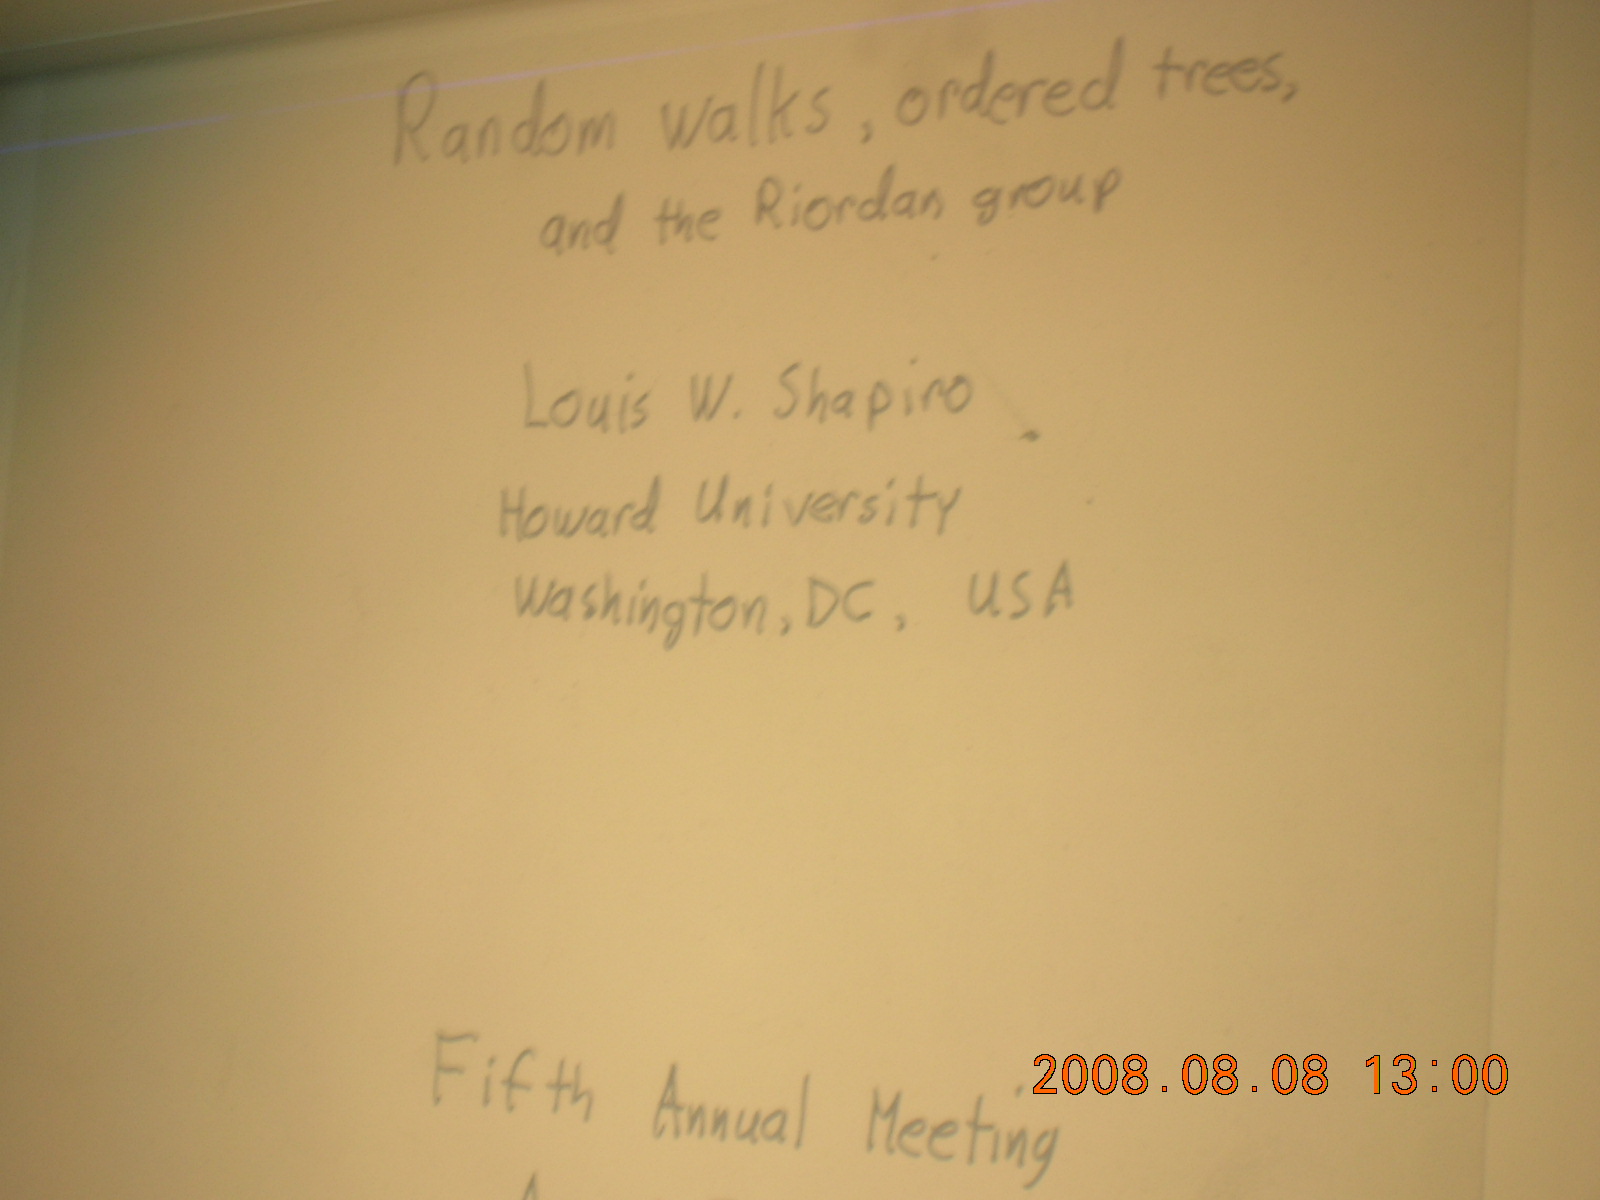 Random walks, ordered trees,
and the Riordan group
Louis W. Shapiro
Howard University
Washington, DC, USA
Fifth Annual Meeting
2008.08.08 13:00